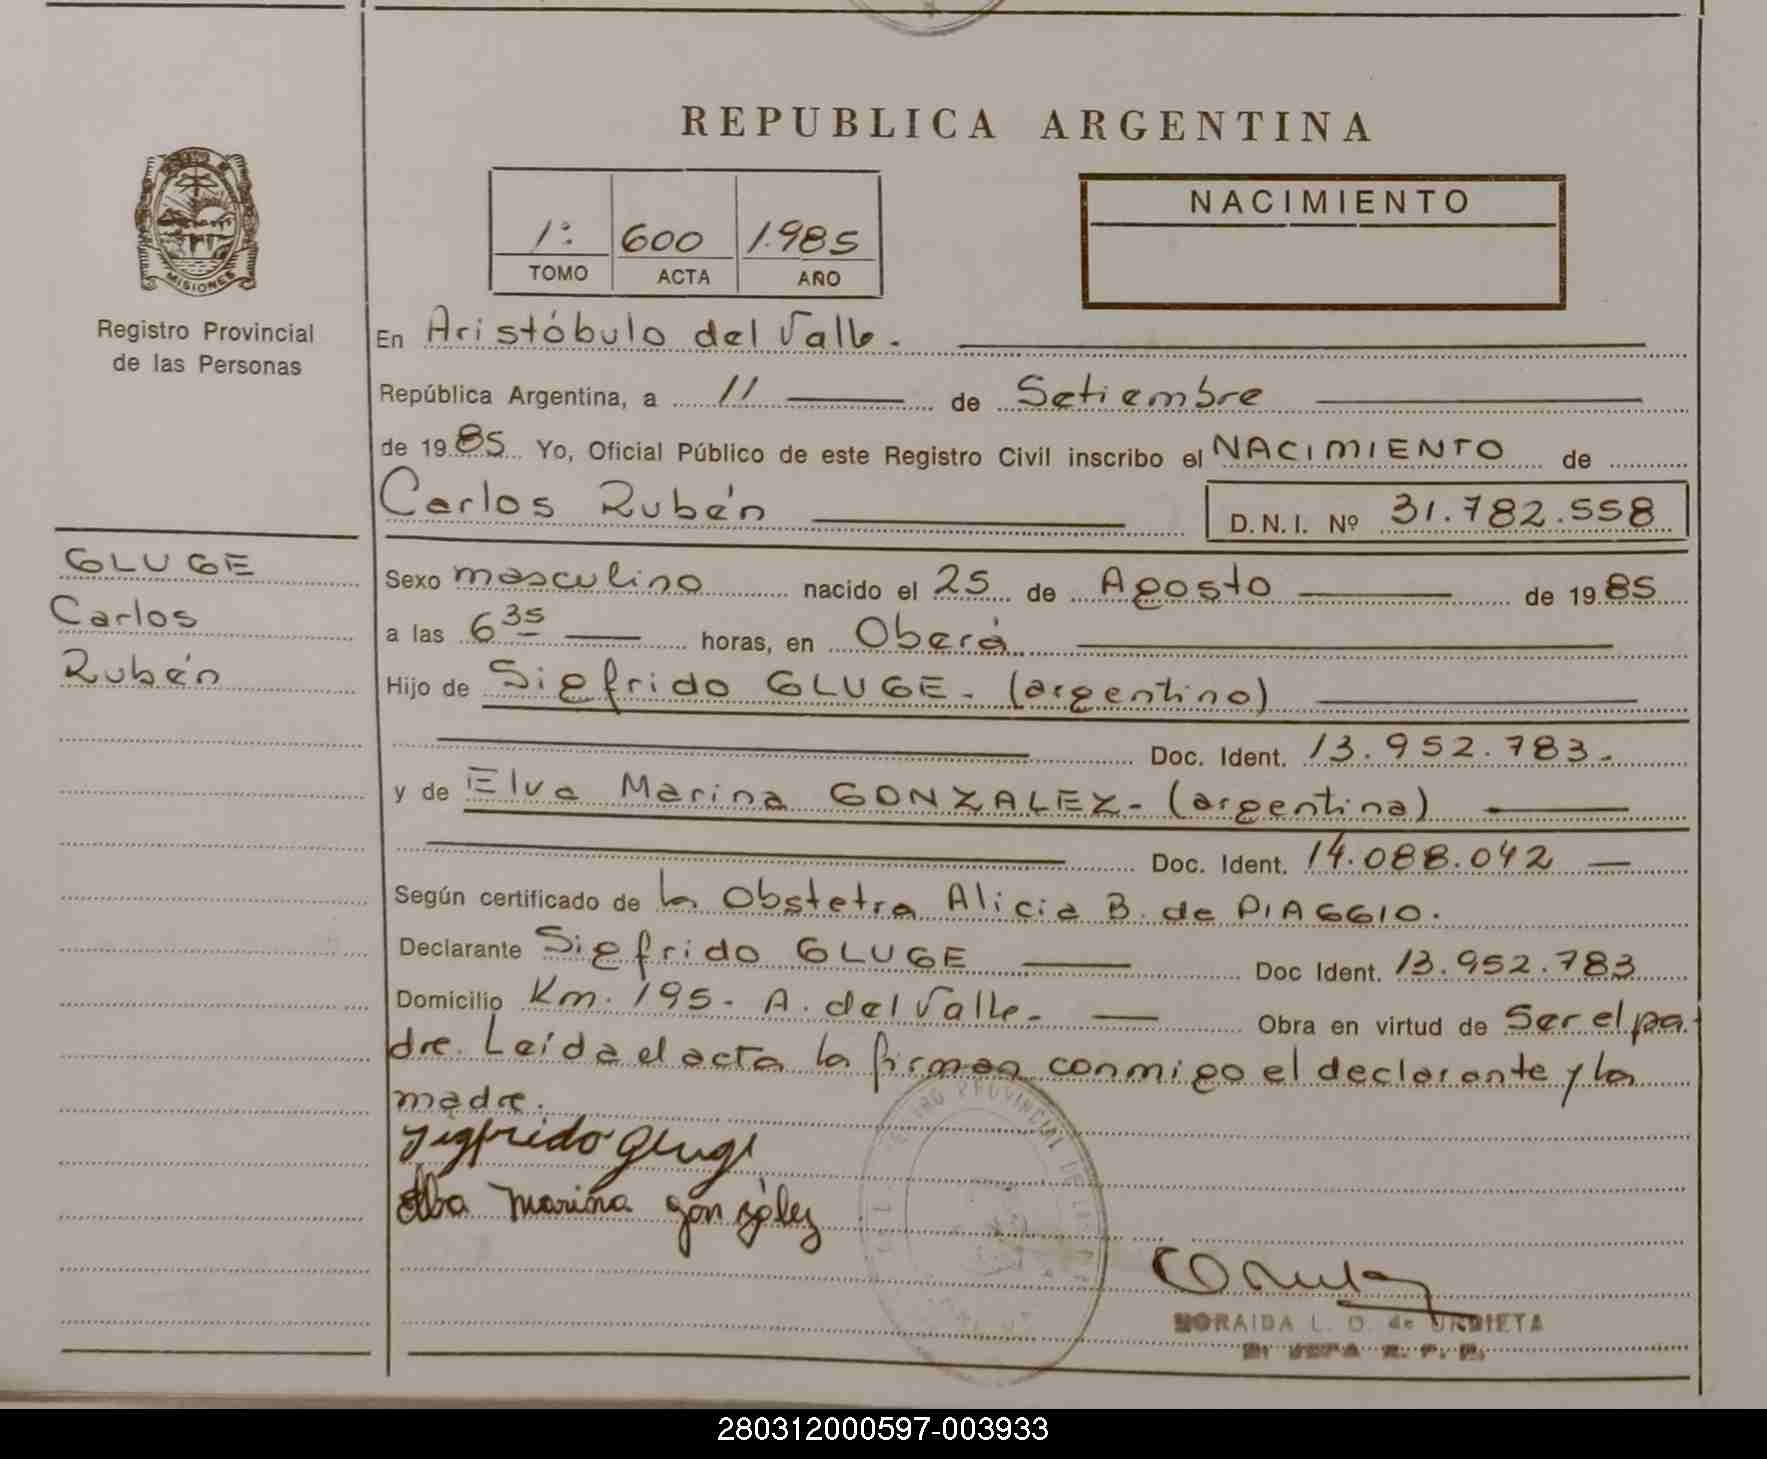 REPUBLICA ARGENTINA
MISIONES
Registro Provincial
de las Personas
1: 600 1.985
TOMO ACTA AÑO
NACIMIENTO
En Aristóbulo del Valle.
República Argentina, a 11 de Setiembre
de 19 85 Yo, Oficial Público de este Registro Civil inscribo el NACIMIENTO de
Carlos Rubén
D.N.I. Nº 31.782.558
GLUGE
Carlos
Rubén
Sexo masculino nacido el 25 de Agosto de 19 85
a las 6 35 horas, en Oberá
Hijo de Sigfrido GLUGE. (argentino)
Doc. Ident. 13.952.783.
y de Elva Marina GONZALEZ- (argentina)
Doc. Ident. 14.088.042
Según certificado de la Obstetra Alicia B. de PIAGGIO.
Declarante Sigfrido GLUGE Doc Ident. 13.952.783
Domicilio Km. 195- A. del Valle. Obra en virtud de Ser el pa-
dre. Leída el acta la firman conmigo el declarante y la
madre.
Sigfrido Gluge
Elba Marina González
PROVINCIAL DE LAS
MORAIDA L. O. de URDIETA
280312000597-003933